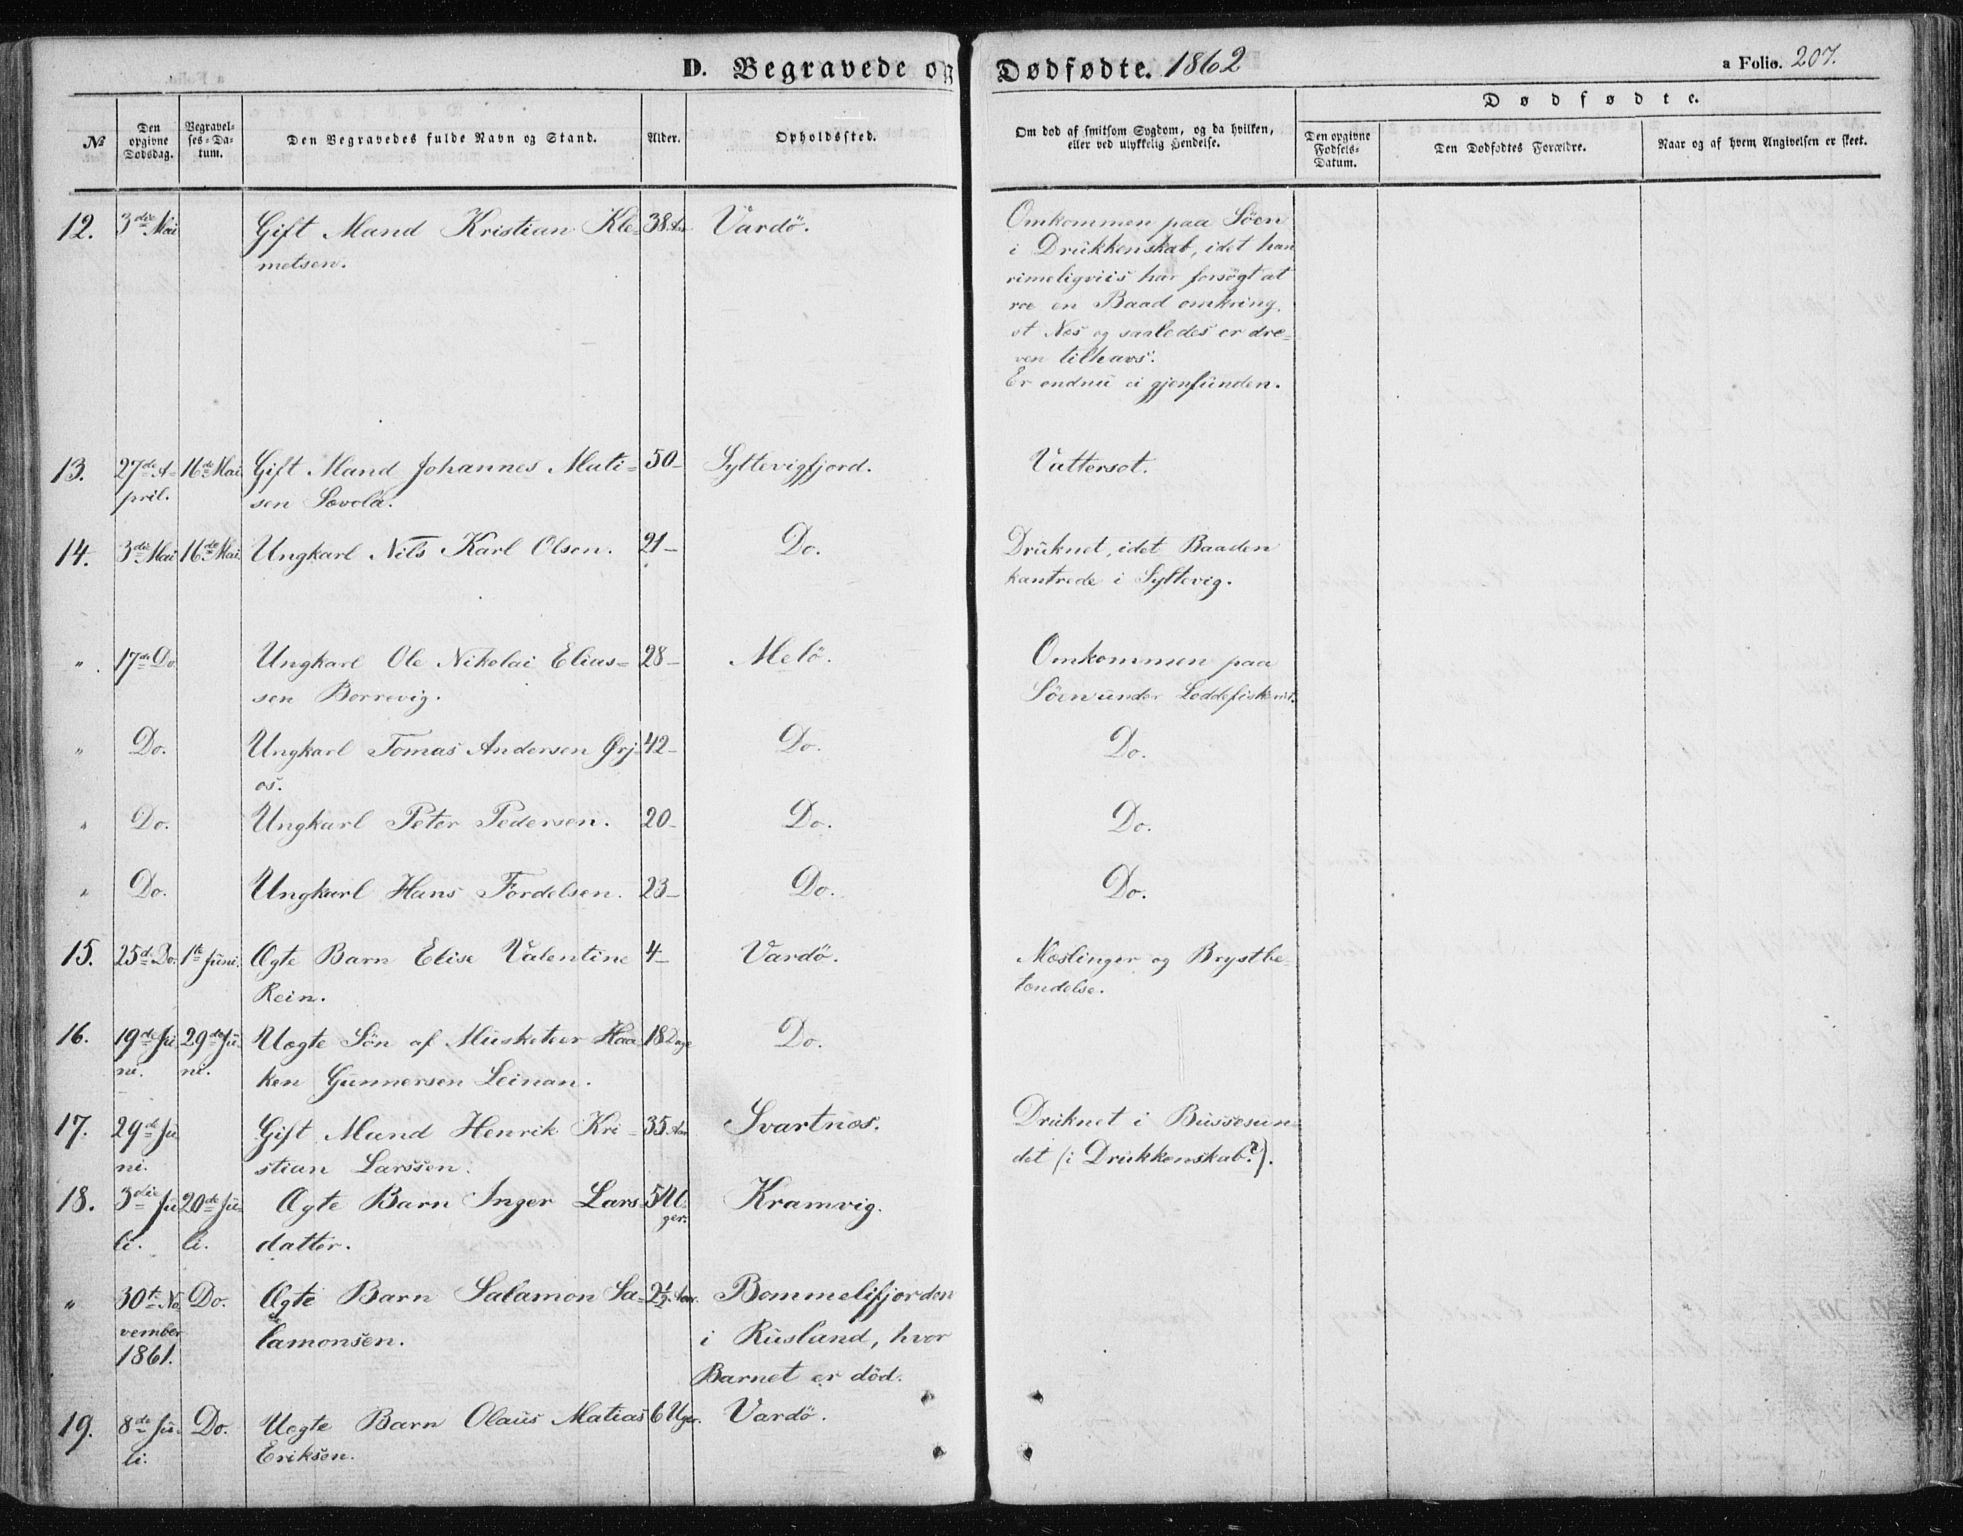 D. Begravede og Dødfødte. 1862
a Folio. 207.
№
Den opgivne Dødsdag.
Begravelses-Datum.
Den Begravedes fulde Navn og Stand.
Alder.
Opholdssted.
Om død af smitsom Sygdom, og da hvilken,
eller ved ulykkelig Hendelse.
Dødfødte.
Den opgivne Fødsels-Datum.
Den Dødfødtes Forældre.
Naar og af hvem Angivelsen er skeet.
12. 3die Mai Gift Mand Kristian Kle- 38 Aar Vardö.
metsen.
Omkommen paa Söen
i Drukkenskab, idet han
rimeligviis har forsögt at
roe en Baad omkring
et Nes og saaledes er dre-
ven tilhavs.
Er endnu ei gjenfunden.
13. 27de A- 16de Mai Gift Mand Johannes Mati- 50- Syltevigfjord. Vattersot.
pril. sen Savola.
14. 3die Mai 16de Mai Ungkarl Nils Karl Olsen. 21- Do. Druknet, idet Baaden
kantrede i Syltevig.
" 17de Do. Ungkarl Ole Nikolai Elias- 28- Melö. Omkommen paa
sen Borrevig. Söen under Loddefiskeriet.
" Do. Ungkarl Tomas Andersen Ørj- 42- Do. Do.
os.
" Do. Ungkarl Peter Pedersen. 20- Do. Do.
" Do. Ungkarl Hans Tordelsen. 23- Do. Do.
15. 25de Do. 1te Juni. Ægte Barn Elise Valentine 4- Vardö. Meslinger og Brystbe-
Rein. tendelse.
16. 19de Ju 29de Ju- Uægte Sön af Musketeer Haa 18 Dage Do.
ni. ni. ken Gunnersen Leinan.
17. 29de Ju Gift Mand Henrik Kri- 35 Aar Svartnes. Druknet i Bussesun-
ni. stian Larssen. det (i Drukkenskab?).
18. 3die Ju 20de Ju- Ægte Barn Inger Lars- 5 U- Kramvig.
li. li. datter. ger.
" 30te No Do. Ægte Barn Salamon Sa- 2½ Aar. Bommelifjorden
vember lamonsen. i Rusland, hvor
1861. Barnet er död.
19. 8de Ju- Do. Uegte Barn Olaus Matias 6 Uger. Vardö.
li. Eriksen.